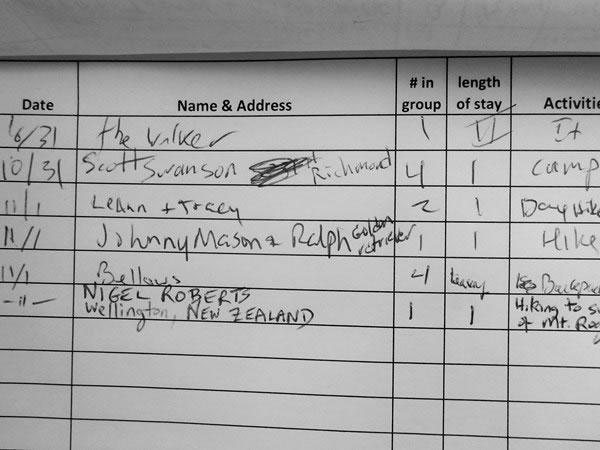 Date Name & Address # in group length of stay Activitie
10/31 the 1 VI It
10/31 Scott Swanson + Richmond 4 1 Camp
11/1 Leann + Tracy 2 1 Day Hike
11/1 Johnny Mason & Ralph Golden retriever 1 1 Hike
11/1 Bellows 4 leaving
-11- NIGEL ROBERTS
Wellington, NEW ZEALAND 1 1 Hiking to su
of Mt. Ro